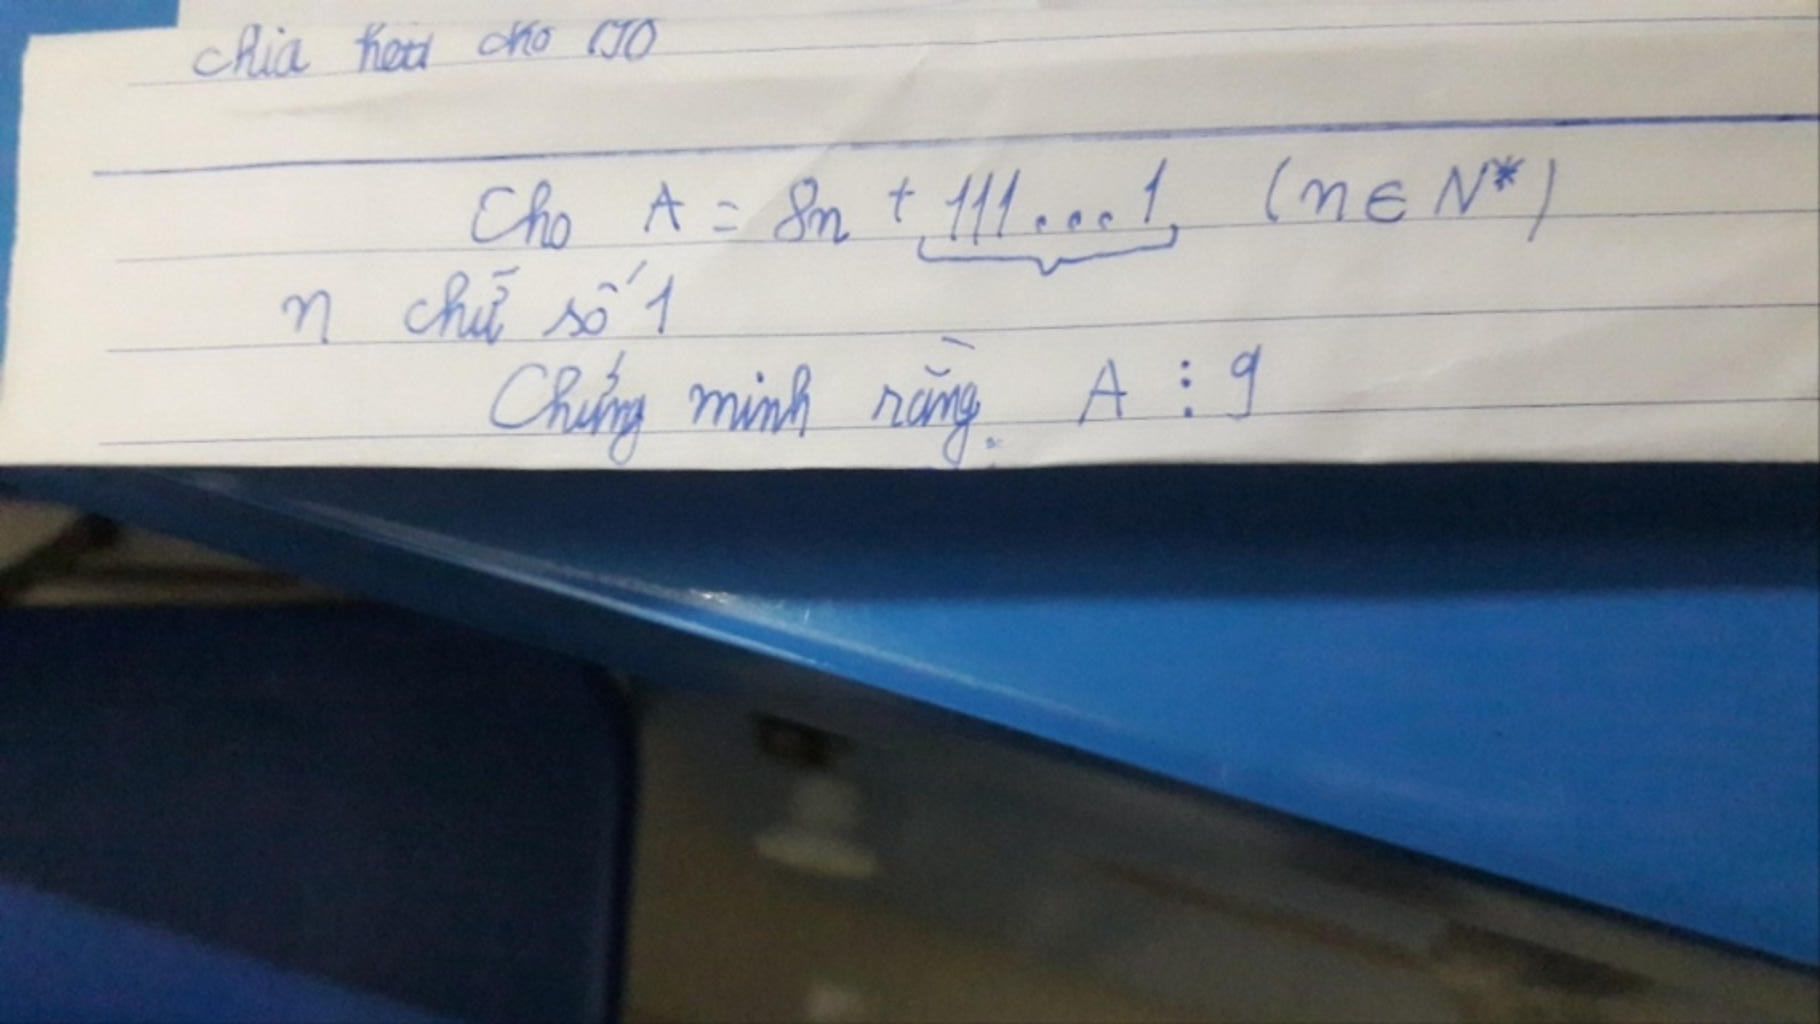 chia hết cho
Cho A = 8n + 111...1 (n ∈ N*)
n chữ số 1
Chứng minh rằng A ⋮ 9